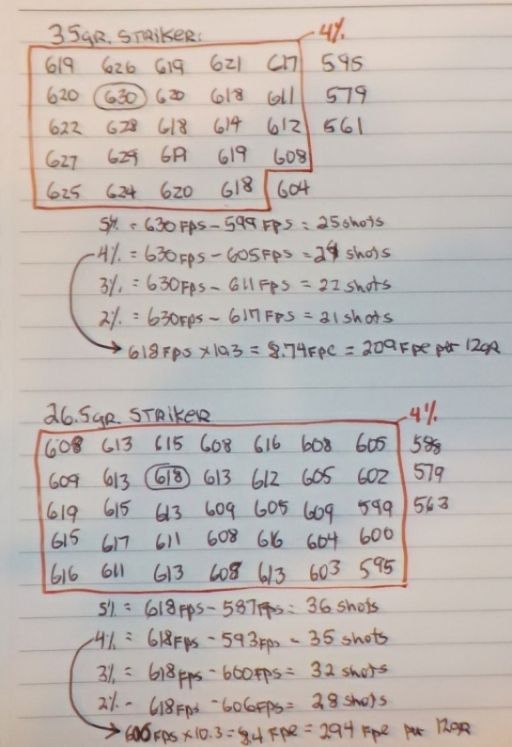 35gr. STRIKER: 4%
619 626 619 621 617 595
620 630 620 618 611 579
622 628 618 614 612 561
627 629 619 619 608
625 624 620 618 604
5% = 630 FPS - 599 FPS = 25 shots
4% = 630 FPS - 605 FPS = 24 shots
3% = 630 FPS - 611 FPS = 22 shots
2% = 630 FPS - 617 FPS = 21 shots
618 FPS x 10.3 = 8.74 Fpe = 209 Fpe per 12gr
26.5gr. STRIKER 4%
608 613 615 608 616 608 605 588
609 613 618 613 612 605 602 579
619 615 613 609 605 609 599 563
615 617 611 608 616 604 600
616 611 613 608 613 603 595
5% = 618 FPS - 587 FPS = 36 shots
4% = 618 FPS - 593 FPS - 35 shots
3% = 618 FPS - 600 FPS = 32 shots
2% - 618 FPS - 606 FPS = 28 shots
FPS x 10.3 = 8.4 Fpe = 294 Fpe per 12gr